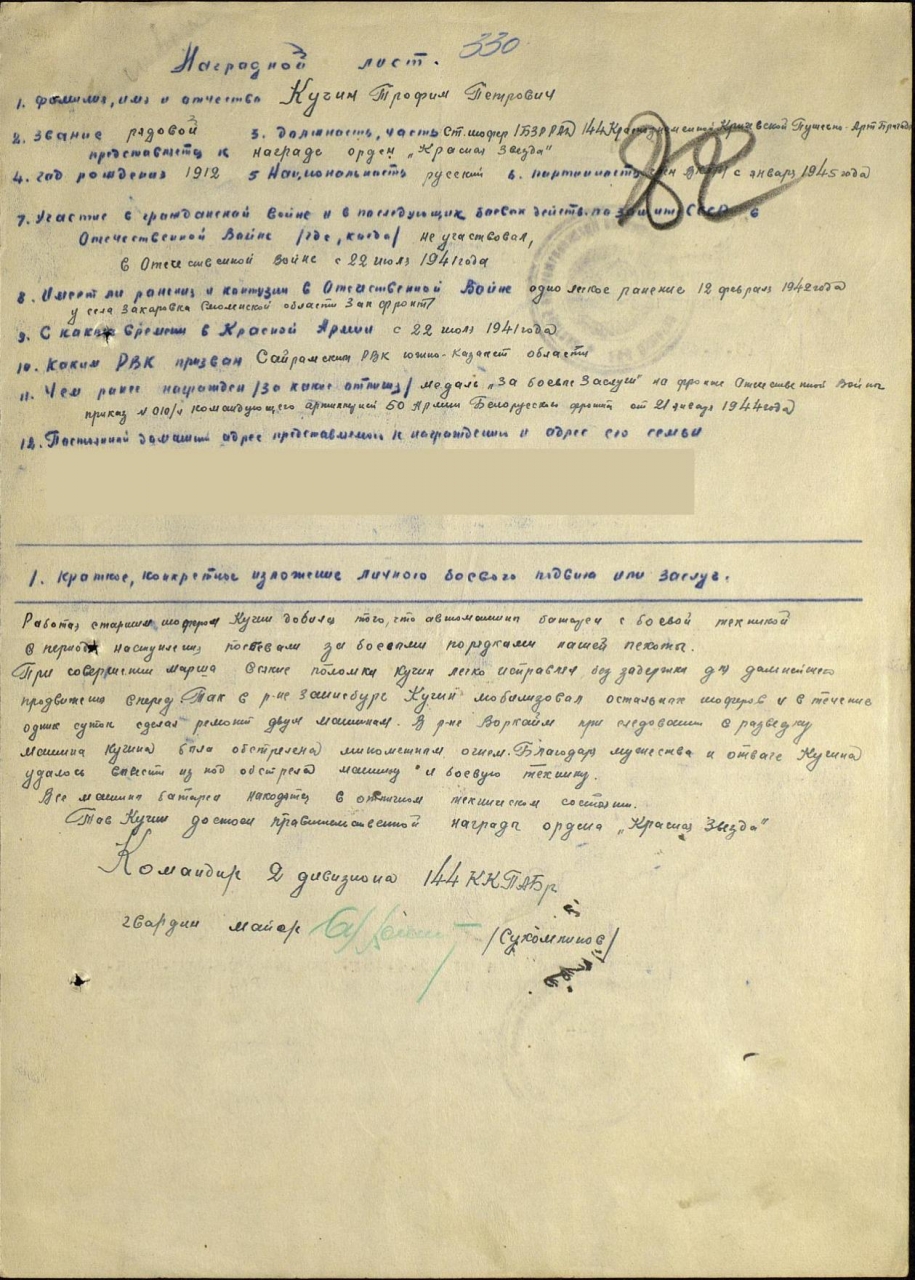 330
Наградной лист.
1. Фамилия, имя и отчество Кучин Трофим Петрович
2. Звание рядовой 3. Должность, часть Ст. шофер 144 Краснознаменной Кричевской Пушечно-Арт Бригады
представляется к награде орден „Красная Звезда"
4. год рождения 1912 5 Национальность русский 6. партийность с января 1945 года
7. Участие в гражданской войне и в последующих боевых действ. по защите СССР в
Отечественной Войне /где, когда/ не участвовал,
в Отечественной Войне с 22 июля 1941 года
8. Имеет ли ранения и контузии в Отечественной Войне одно легкое ранение 12 февраля 1942 года
у села Захаровка Смоленской области Зап фронт/
9. С какого времени в Красной Армии с 22 июля 1941 года
10. Каким РВК призван Сайрамским РВК южно-Казахст области
11. Чем ранее награжден /за какие отличия/ медаль „За боевые Заслуги" на фронте Отечественной Войны
приказ № 010/н командующего артиллерией 50 Армии Белорусского фронта от 21 января 1944 года
12. Постоянный домашний адрес представляемого к награждению и адрес его семьи
1. Краткое, конкретное изложение личного боевого подвига или заслуг.
Работая старшим шофером Кучин добился того, что автомашины батареи с боевой техникой
в период наступления поспевали за боевыми порядками нашей пехоты.
При совершении марша всякие поломки Кучин легко исправлял без задержки для дальнейшего
продвижения вперед. Так в р-не Заисбург Кучин мобилизовал остальных шоферов и в течение
одних суток сделал ремонт двум машинам. В р-не Воркайм при следовании в разведку
машина Кучина была обстрелена минометным огнем. Благодаря мужества и отваге Кучина
удалось вывести из под обстрела машину и боевую технику.
Все машины батареи находятся в отличном техническом состоянии.
Тов Кучин достоин правительственной награды ордена „Красная Звезда"
Командир 2 дивизиона 144 ККПАБр
гвардии майор /Сухомлинов/